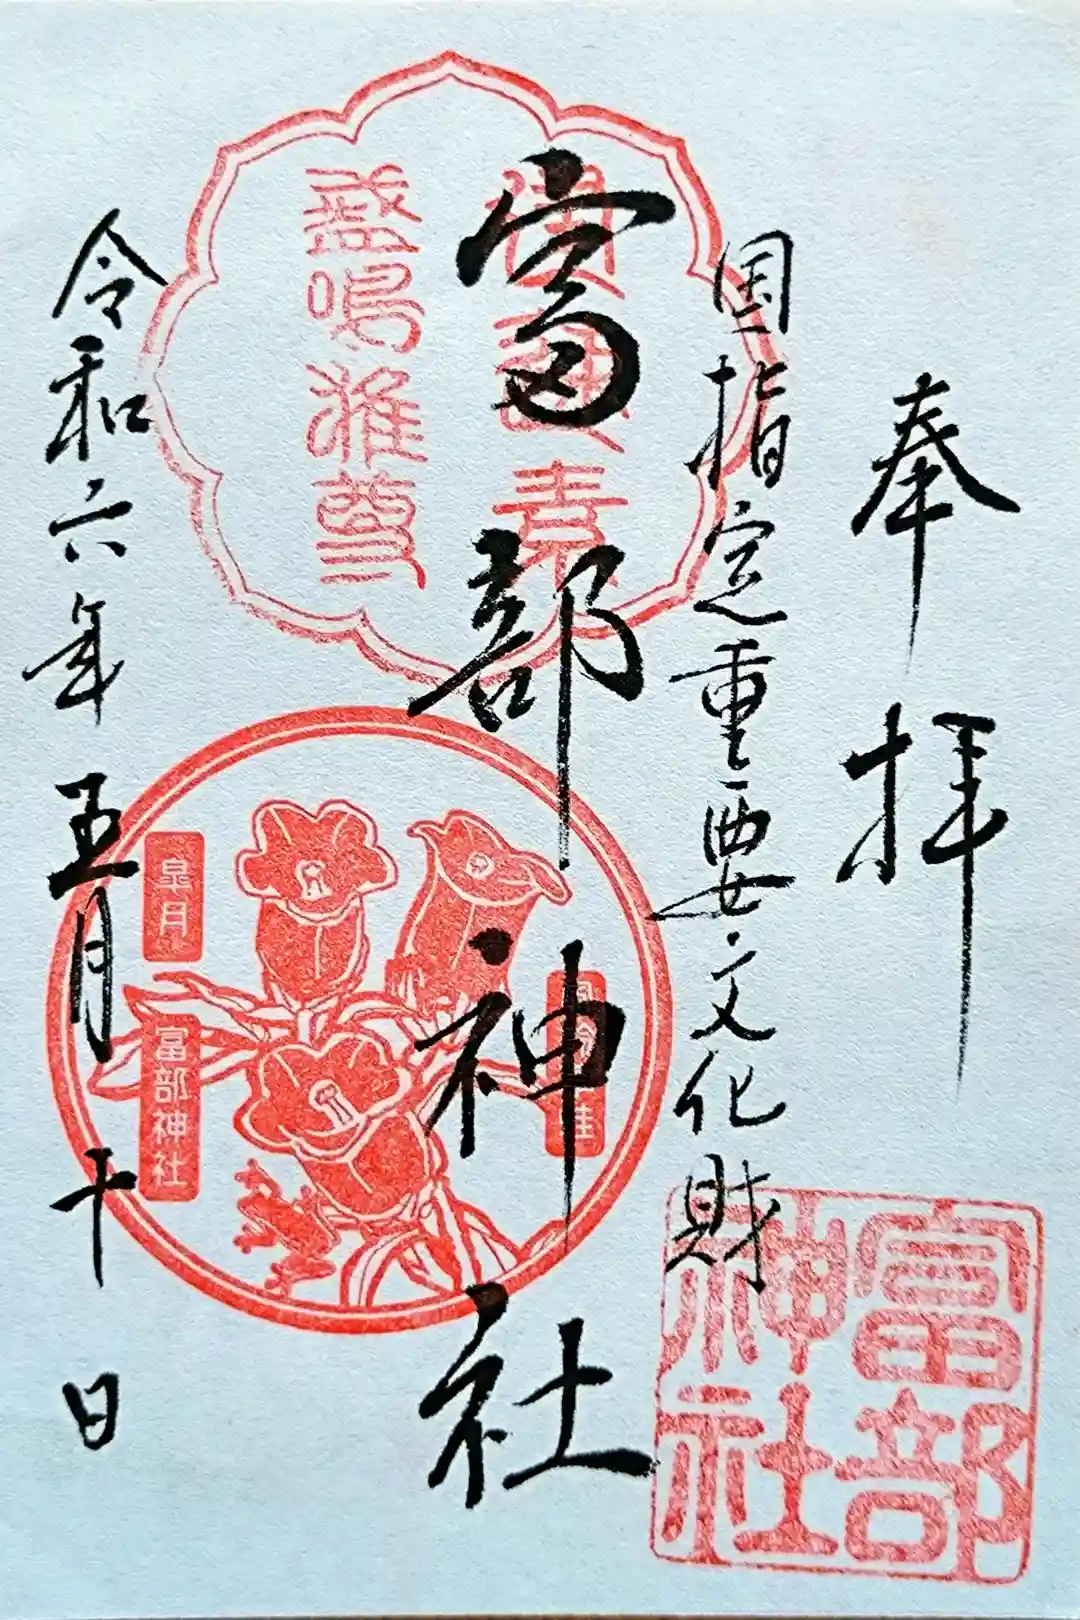 奉拝
国指定重要文化財
富部神社
令和六年五月十日
皐月
冨部神社
富部
神社